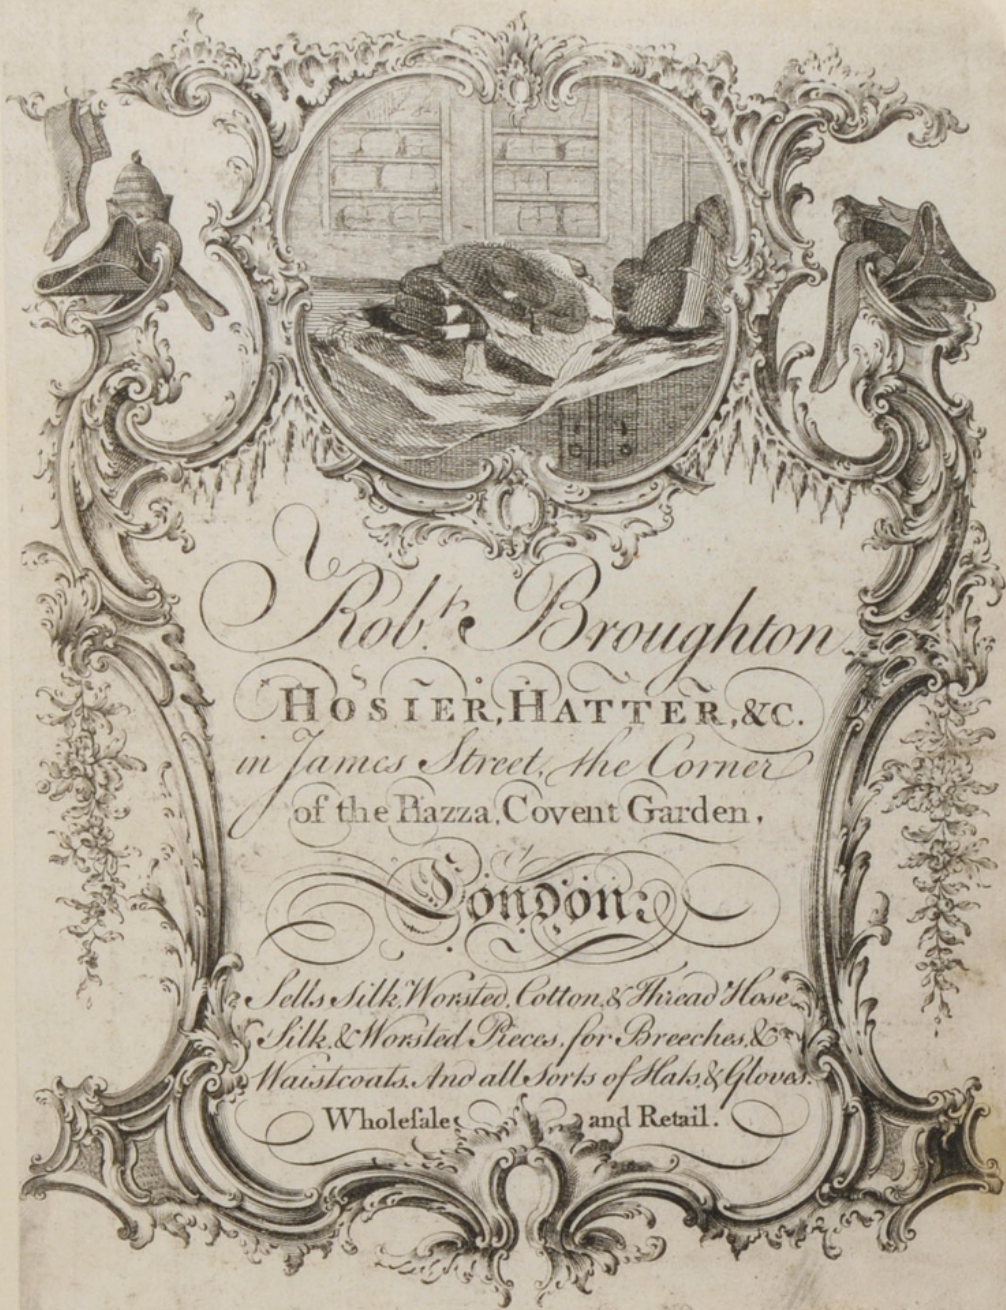 Robt. Broughton
HOSIER, HATTER, &C.
in James Street, the Corner
of the Piazza, Covent Garden,
London:
Sells Silk, Worsted, Cotton, & Thread Hose
Silk, & Worsted Pieces, for Breeches, &
Waistcoats, And all Sorts of Hats, & Gloves.
Wholeſale and Retail.